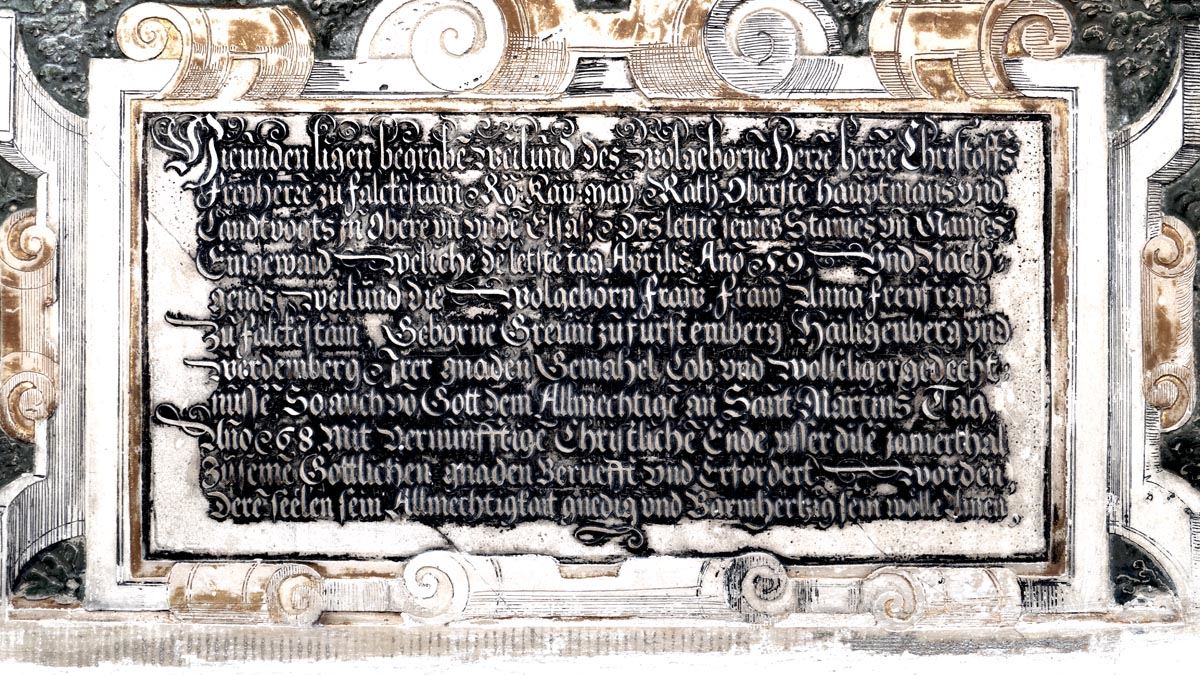 Hieunden ligen begrabē weilund des Wolgeborne Herrē herrē Christoffs
Freyherrē zu Falckestain Rō. Kay. May. Rath Oberste hauptmans vnd
Landtvogts in Obere vn vnde Elsaß des letste seines Stames vn Names
Eingewaid weliche dē letste tag Aprilis Año 59 Vnd Nach
gends weilund die wolgeborn fraw fraw Anna freyfraw
Zu falckestain Geborne Grevin zu furstemberg Hailigenberg vnd
wördemberg Irer gnaden Gemahel Lob. vnd wolseliger gedecht,
nusse So auch vō Gott dem Allmechtigē añ Sant Martins Tag
Año 68 Mit Vernünfftige Christliche Ende vsser dise jamerthal
Zu seine Gottlichen gnaden Berüefft vnd Erfordert worden
Derē seelen sein Allmechtigkait gnedig vnd Barmhertzig sein wolle Amen